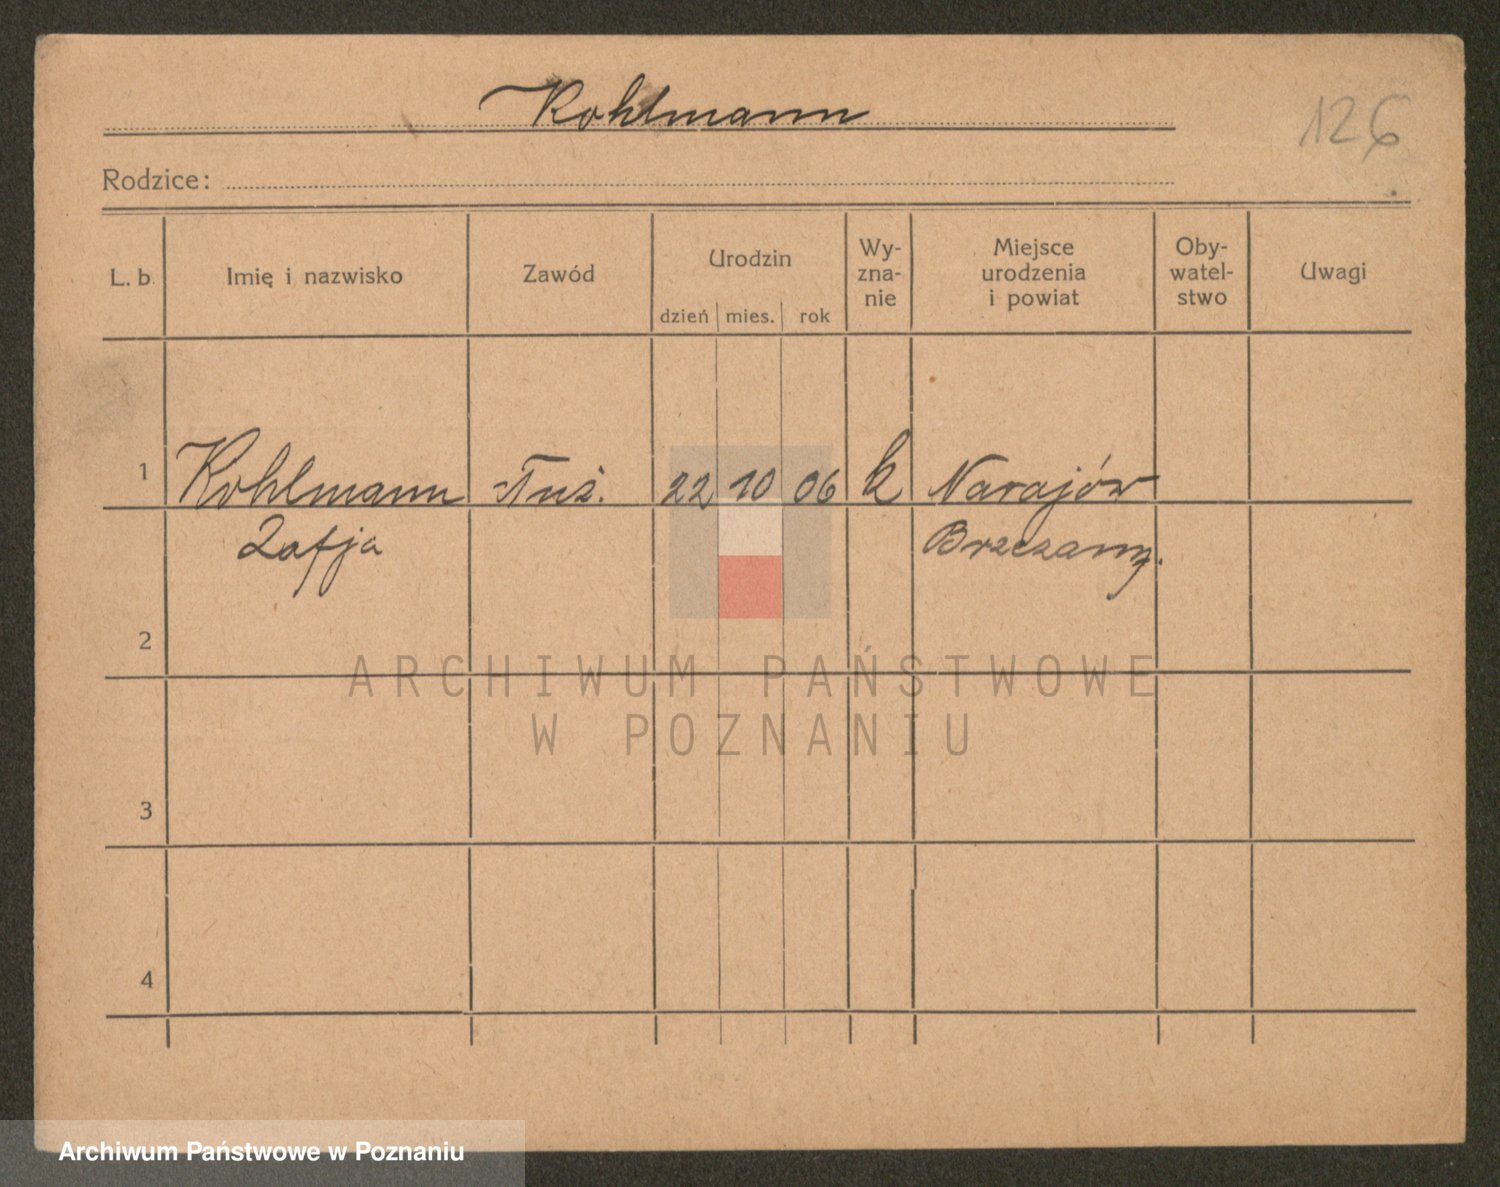 Kohlmann
126
Rodzice:
L. b. Imię i nazwisko Zawód Urodzin dzień mies. rok Wy-zna-nie Miejsce urodzenia i powiat Oby-watel-stwo Uwagi
1 Kohlmann Inż. 22 10 06 k Narajów
Zofja Brzeżany.
2
ARCHIWUM PAŃSTWOWE
W POZNANIU
3
4
Archiwum Państwowe w Poznaniu